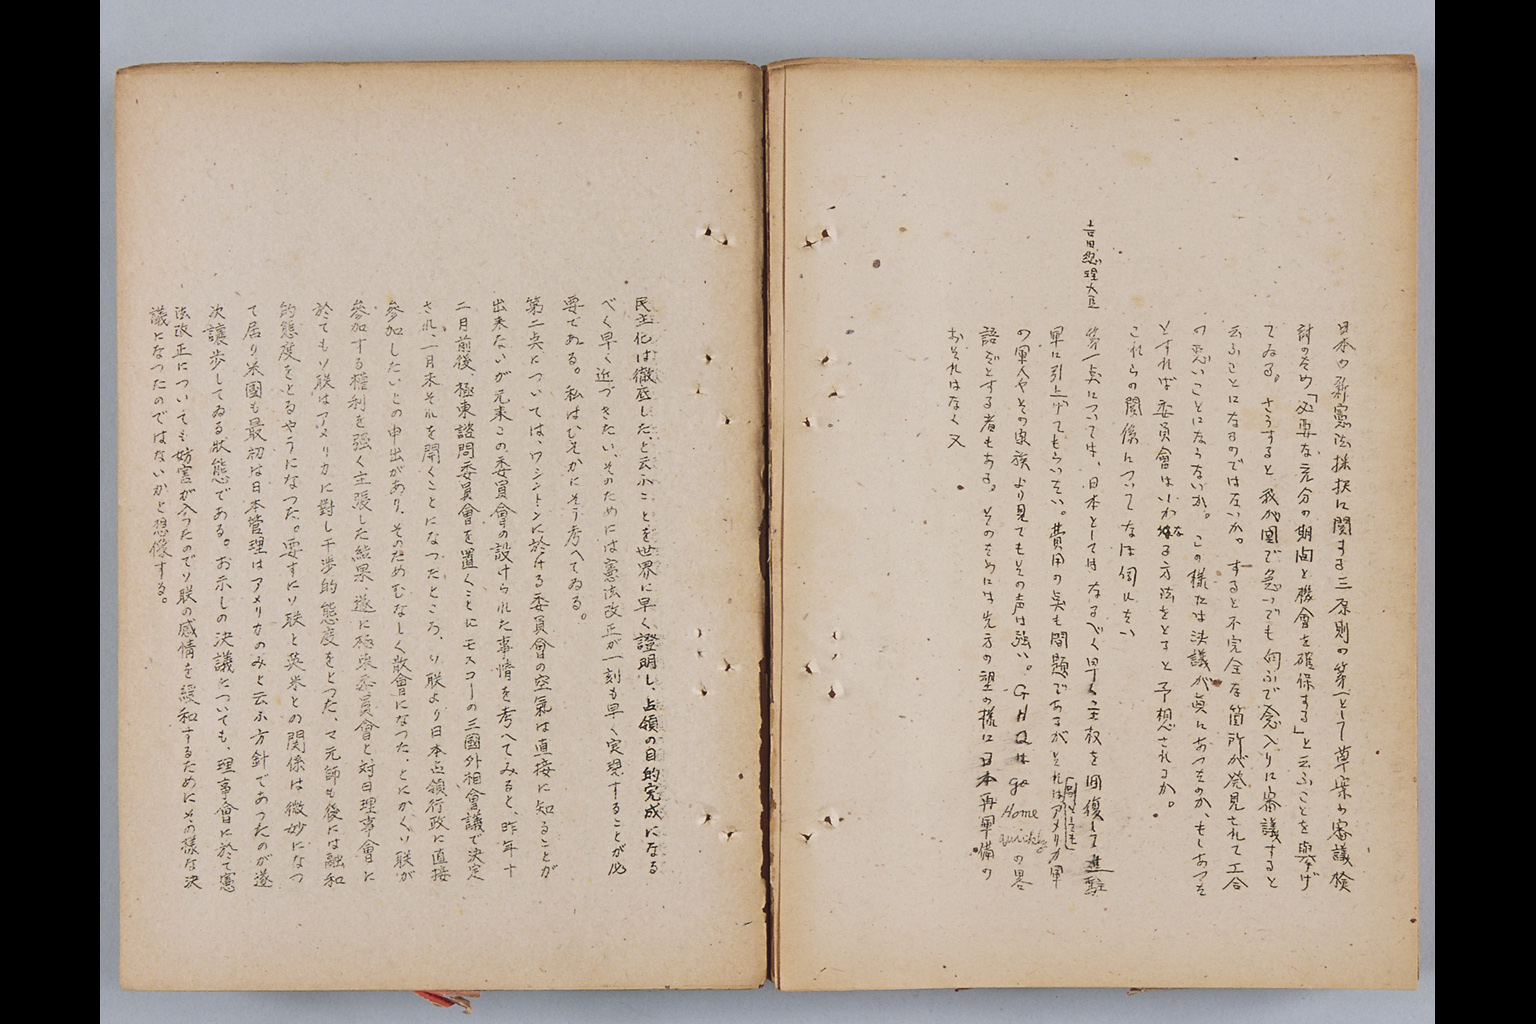 日本の新憲法採択に関する三原則の第一として草案の審議検
討のため「必要な充分の期間と機會を確保する」と云ふことを擧げ
てゐる。さうすると我が國で急いでも向ふで念入りに審議すると
云ふことになるのではないか。すると不完全な箇所が発見されて工合
の悪いことにならないか。この様な決議が眞にあつたのか、もしあつた
とすれば委員會はいかなる方法をとると予想されるか。
これらの関係についてなほ伺ひたい
吉田總理大臣
第一点については、日本としてはなるべく早く主权を回復して進駐
軍に引上げてもらいたい。費用の点も問題であるがそれはアメリカ軍
の軍人やその家族より見てもその声は強い。GHQはgo Home quicklyの畧
語だとする者もある。そのためには先方の望の様に日本再軍備の
おそれはなく又
民主化は徹底したと云ふことを世界に早く證明し、占領の目的完成になる
べく早く近づきたい、そのためには憲法改正が一刻も早く実現することが必
要である。私はひそかにそう考へてゐる。
第二点については、ワシントンに於ける委員會の空氣は直接に知ることが
出来ないが元来この委員會の設けられた事情を考へてみると、昨年十
二月前後、極東諮問委員會を置くことにモスコーの三國外相會議で決定
され、一月末それを開くことになつたところ、ソ联より日本占領行政に直接
参加したいとの申出があり、そのためむなしく散會になつた、とにかくソ联が
参加する權利を強く主張した結果、遂に極東委員會と対日理事會に
於てもソ联はアメリカに對し干渉的態度をとつた、マ元帥も後には融和
的態度をとるやうになつた。要すにソ联と英米との関係は微妙になつ
て居り米國も最初は日本管理はアメリカのみと云ふ方針であつたのが遂
次讓歩してゐる狀態である。お示しの決議についても、理事會に於て憲
法改正についても妨害が入つたのでソ联の感情を緩和するためにその様な決
議になつたのではないかと想像する。